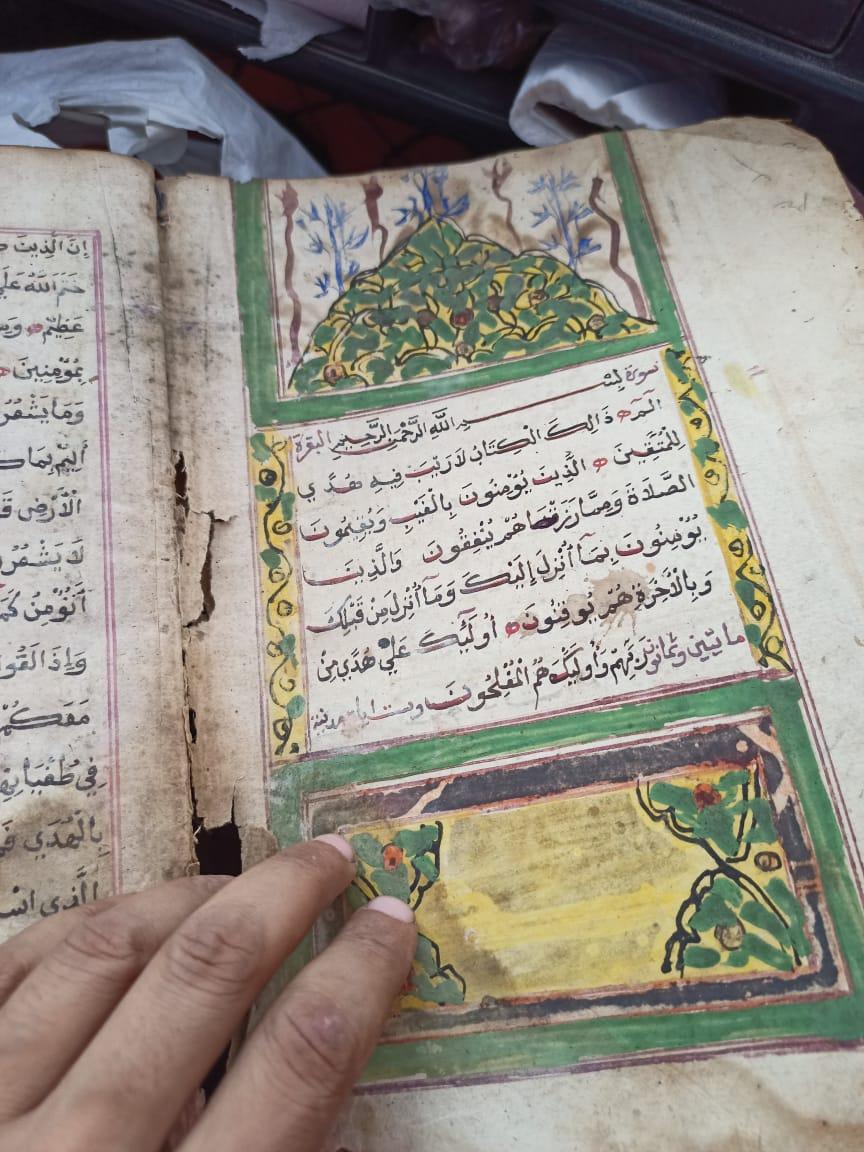 سورة بِسْــــمِ اللَّهِ الرَّحْمَنِ الرَّحِيمِ البقرة
الٓمّٓ ذَالِكَ الْكِتَابُ لَا رَيْبَ فِيهِ هُدًي
لِلْمُتَّقِينَ الَّذِينَ يُؤْمِنُونَ بِالْغَيْبِ وَيُقِيمُونَ
الصَّلَاةَ وَمِمَّا رَزَقْنَاهُمْ يُنْفِقُونَ وَالَّذِينَ
يُؤْمِنُونَ بِمَآ أُنْزِلَ إِلَيْكَ وَمَآ أُنْزِلَ مِنْ قَبْلِكَ
وَبِالْآخِرَةِ هُمْ يُوقِنُونَ أُولَٓئِكَ عَلَي هُدًي مِنْ
مايتين وثمانون رَبِّهِمْ وَأُولَٓئِكَ هُمُ الْمُفْلِحُونَ وست ايات مدنية
اِنَّ الَّذِينَ
خَتَمَ اللَّهُ عَلَي
عَظِيمٌ
بِمُؤْمِنِينَ
وَمَا يَشْعُرُ
أَلِيمٌ بِمَا
الْأَرْضِ
لَا يَشْعُرُ
أَنُؤْمِنُ كَمَ
وَإِذَا لَقُو
مَعَكُمْ
فِي طُغْيَانِهِ
بِالْهُدَي
الَّذِي اسْ